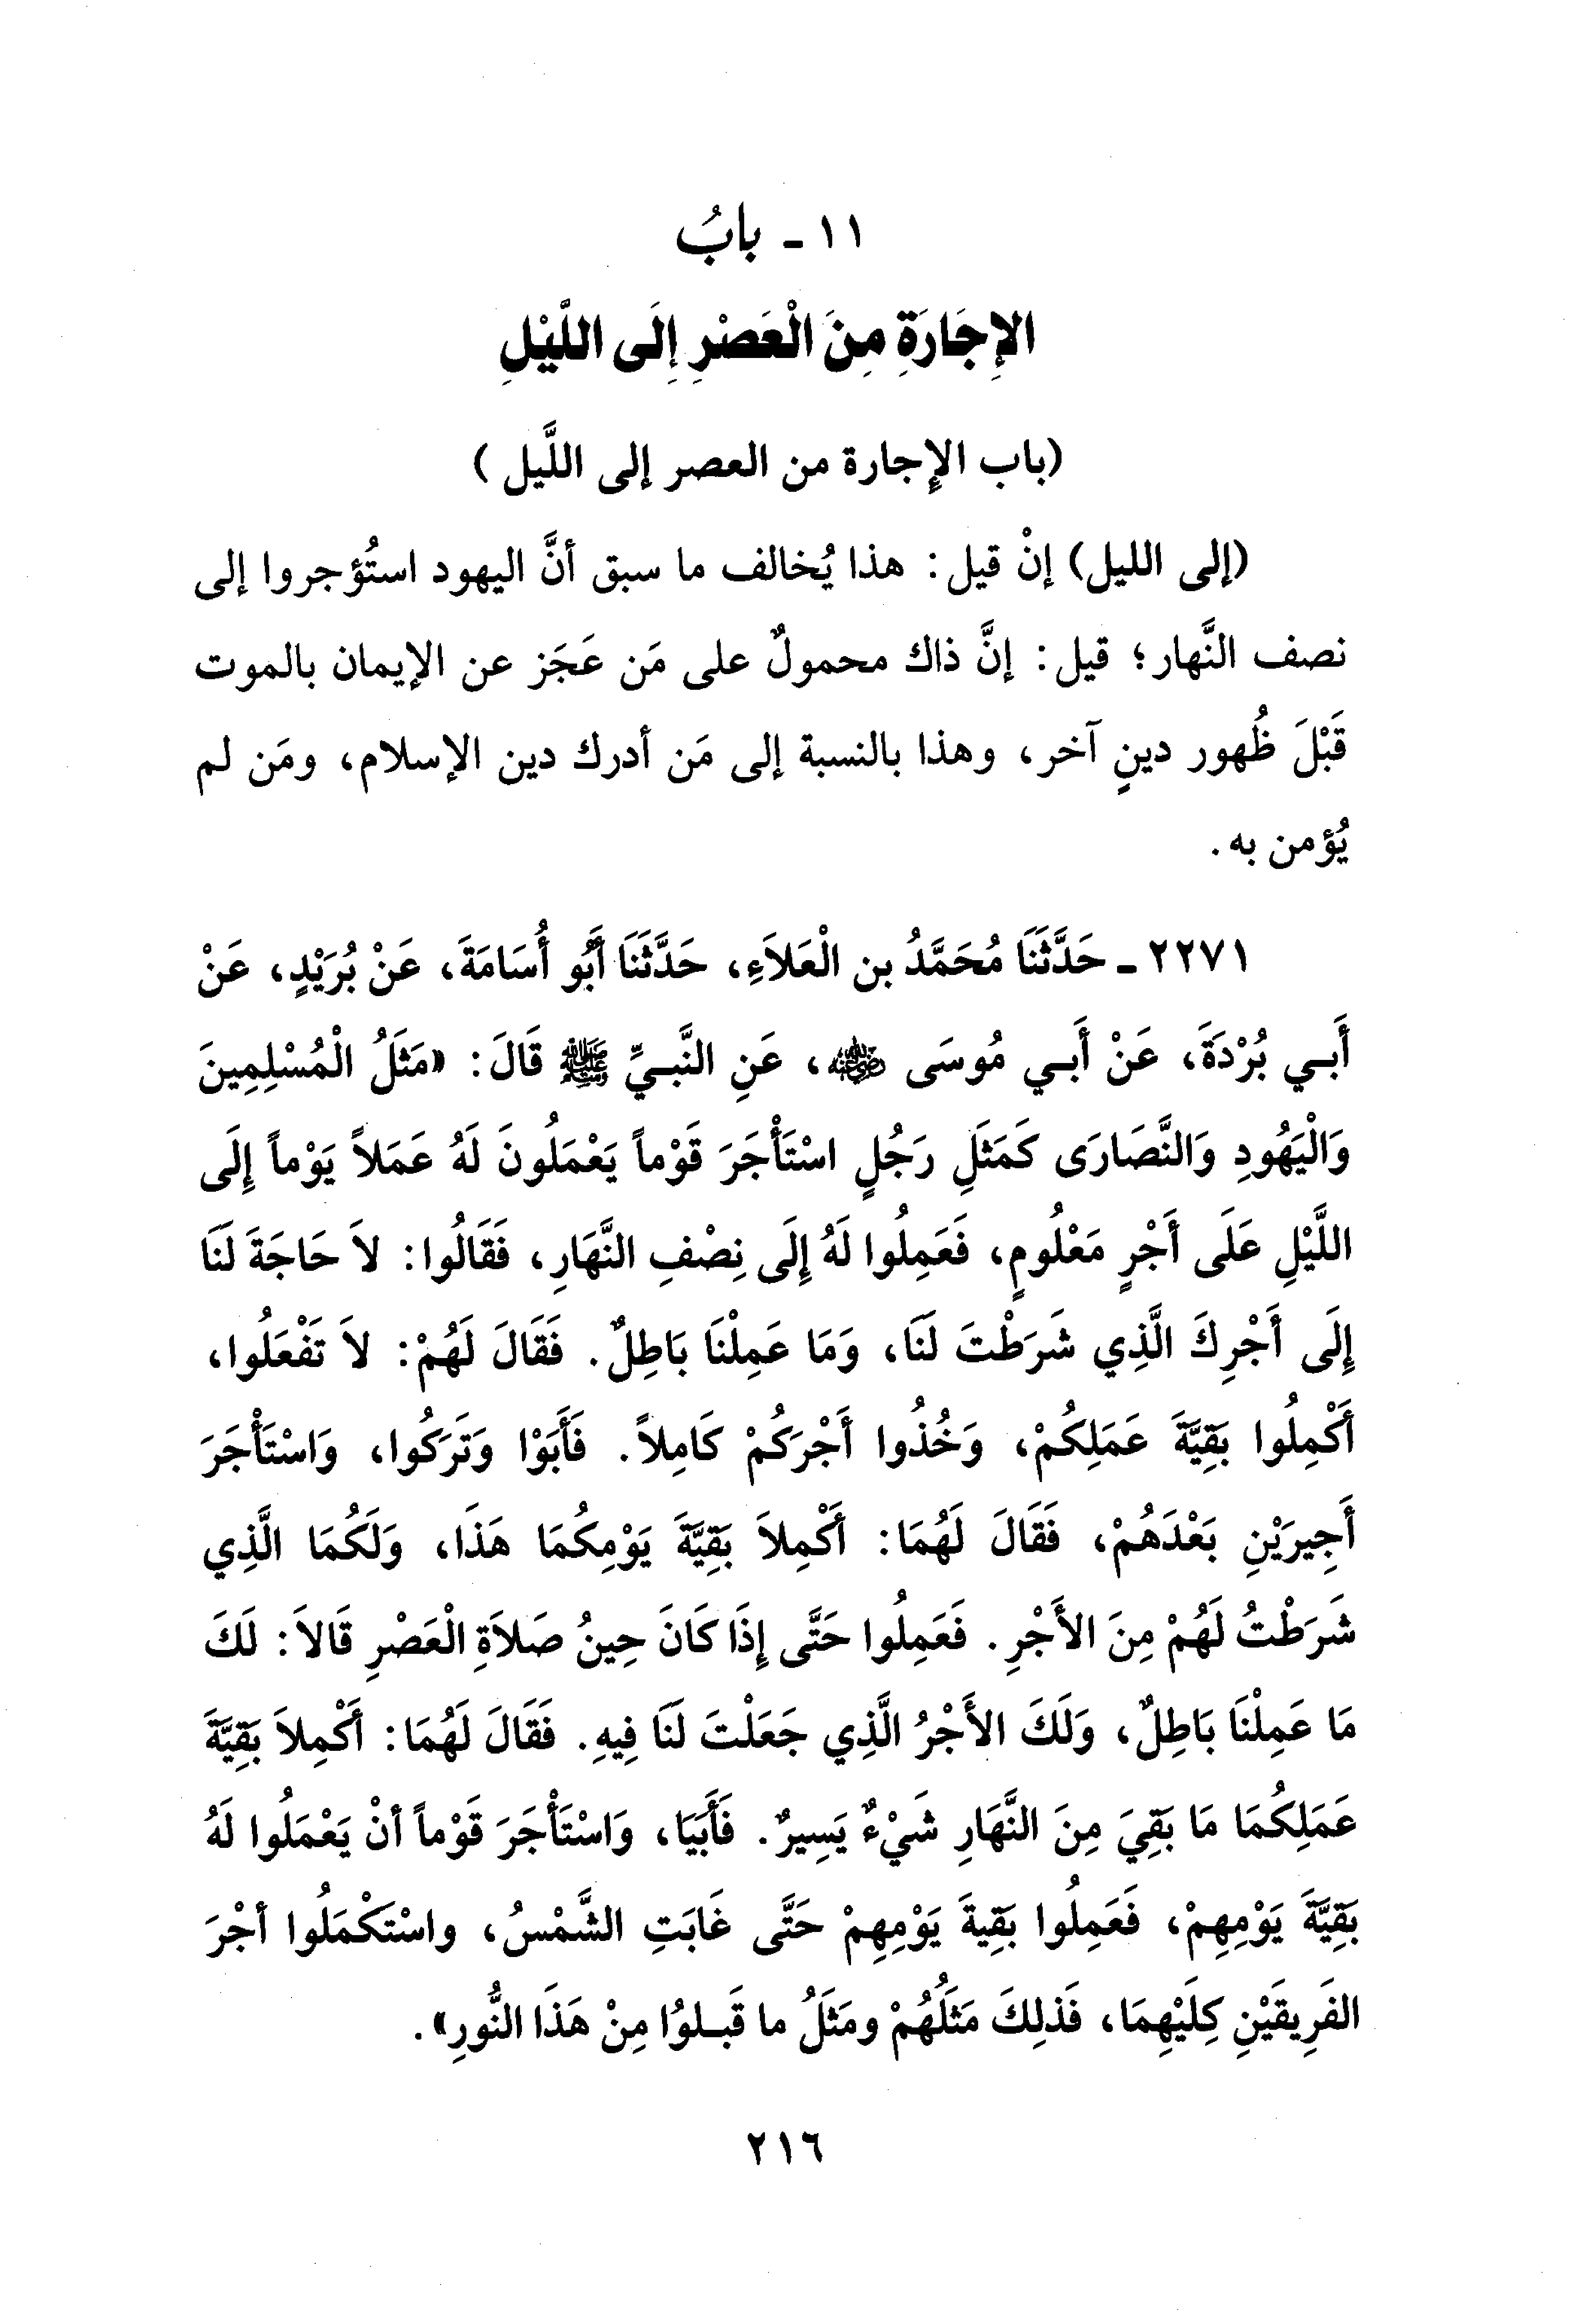 ١١ - بابُ
الإِجَارَةِ مِنَ الْعَصْرِ إِلَى اللَّيْلِ
(باب الإِجارة من العصر إلى اللَّيل)
(إلى الليل) إنْ قيل: هذا يُخالف ما سبق أنَّ اليهود استُؤجروا إلى
نصف النَّهار؛ قيل: إنَّ ذاك محمولٌ على مَن عَجَز عن الإيمان بالموت
قَبْلَ ظُهور دينٍ آخر، وهذا بالنسبة إلى مَن أدرك دين الإسلام، ومَن لم
يُؤمن به.
٢٢٧١ - حَدَّثَنَا مُحَمَّدُ بن الْعَلاَءِ، حَدَّثَنَا أَبُو أُسَامَةَ، عَنْ بُرَيْدٍ، عَنْ
أَبي بُرْدَةَ، عَنْ أَبي مُوسَى ﵁، عَنِ النَّبيِّ ﷺ قَالَ: «مَثَلُ الْمُسْلِمِينَ
وَالْيَهُودِ وَالنَّصَارَى كَمَثَلِ رَجُلٍ اسْتَأْجَرَ قَوْماً يَعْمَلُونَ لَهُ عَمَلاً يَوْماً إِلَى
اللَّيْلِ عَلَى أَجْرٍ مَعْلُومٍ، فَعَمِلُوا لَهُ إِلَى نِصْفِ النَّهَارِ، فَقَالُوا: لاَ حَاجَةَ لَنَا
إِلَى أَجْرِكَ الَّذِي شَرَطْتَ لَنَا، وَمَا عَمِلْنَا بَاطِلٌ. فَقَالَ لَهُمْ: لاَ تَفْعَلُوا،
أَكْمِلُوا بَقِيَّةَ عَمَلِكُمْ، وَخُذُوا أَجْرَكُمْ كَامِلاً. فَأَبَوْا وَتَرَكُوا، وَاسْتَأْجَرَ
أَجِيرَيْنِ بَعْدَهُمْ، فَقَالَ لَهُمَا: أَكْمِلاَ بَقِيَّةَ يَوْمِكُمَا هَذَا، وَلَكُمَا الَّذِي
شَرَطْتُ لَهُمْ مِنَ الأَجْرِ. فَعَمِلُوا حَتَّى إِذَا كَانَ حِينُ صَلاَةِ الْعَصْرِ قَالاَ: لَكَ
مَا عَمِلْنَا بَاطِلٌ، وَلَكَ الأَجْرُ الَّذِي جَعَلْتَ لَنَا فِيهِ. فَقَالَ لَهُمَا: أَكْمِلاَ بَقِيَّةَ
عَمَلِكُمَا مَا بَقِيَ مِنَ النَّهَارِ شَيْءٌ يَسِيرٌ. فَأَبَيَا، وَاسْتَأْجَرَ قَوْماً أنْ يَعْمَلُوا لَهُ
بَقِيَّةَ يَوْمِهِمْ، فَعَمِلُوا بَقِيةَ يَوْمِهِمْ حَتَّى غَابَتِ الشَّمْسُ، واسْتَكْمَلُوا أجْرَ
الفَرِيقَيْنِ كِلَيْهِمَا، فَذلِكَ مَثَلُهُمْ ومَثَلُ ما قَبلوُا مِنْ هَذَا النُّورِ».
٢١٦